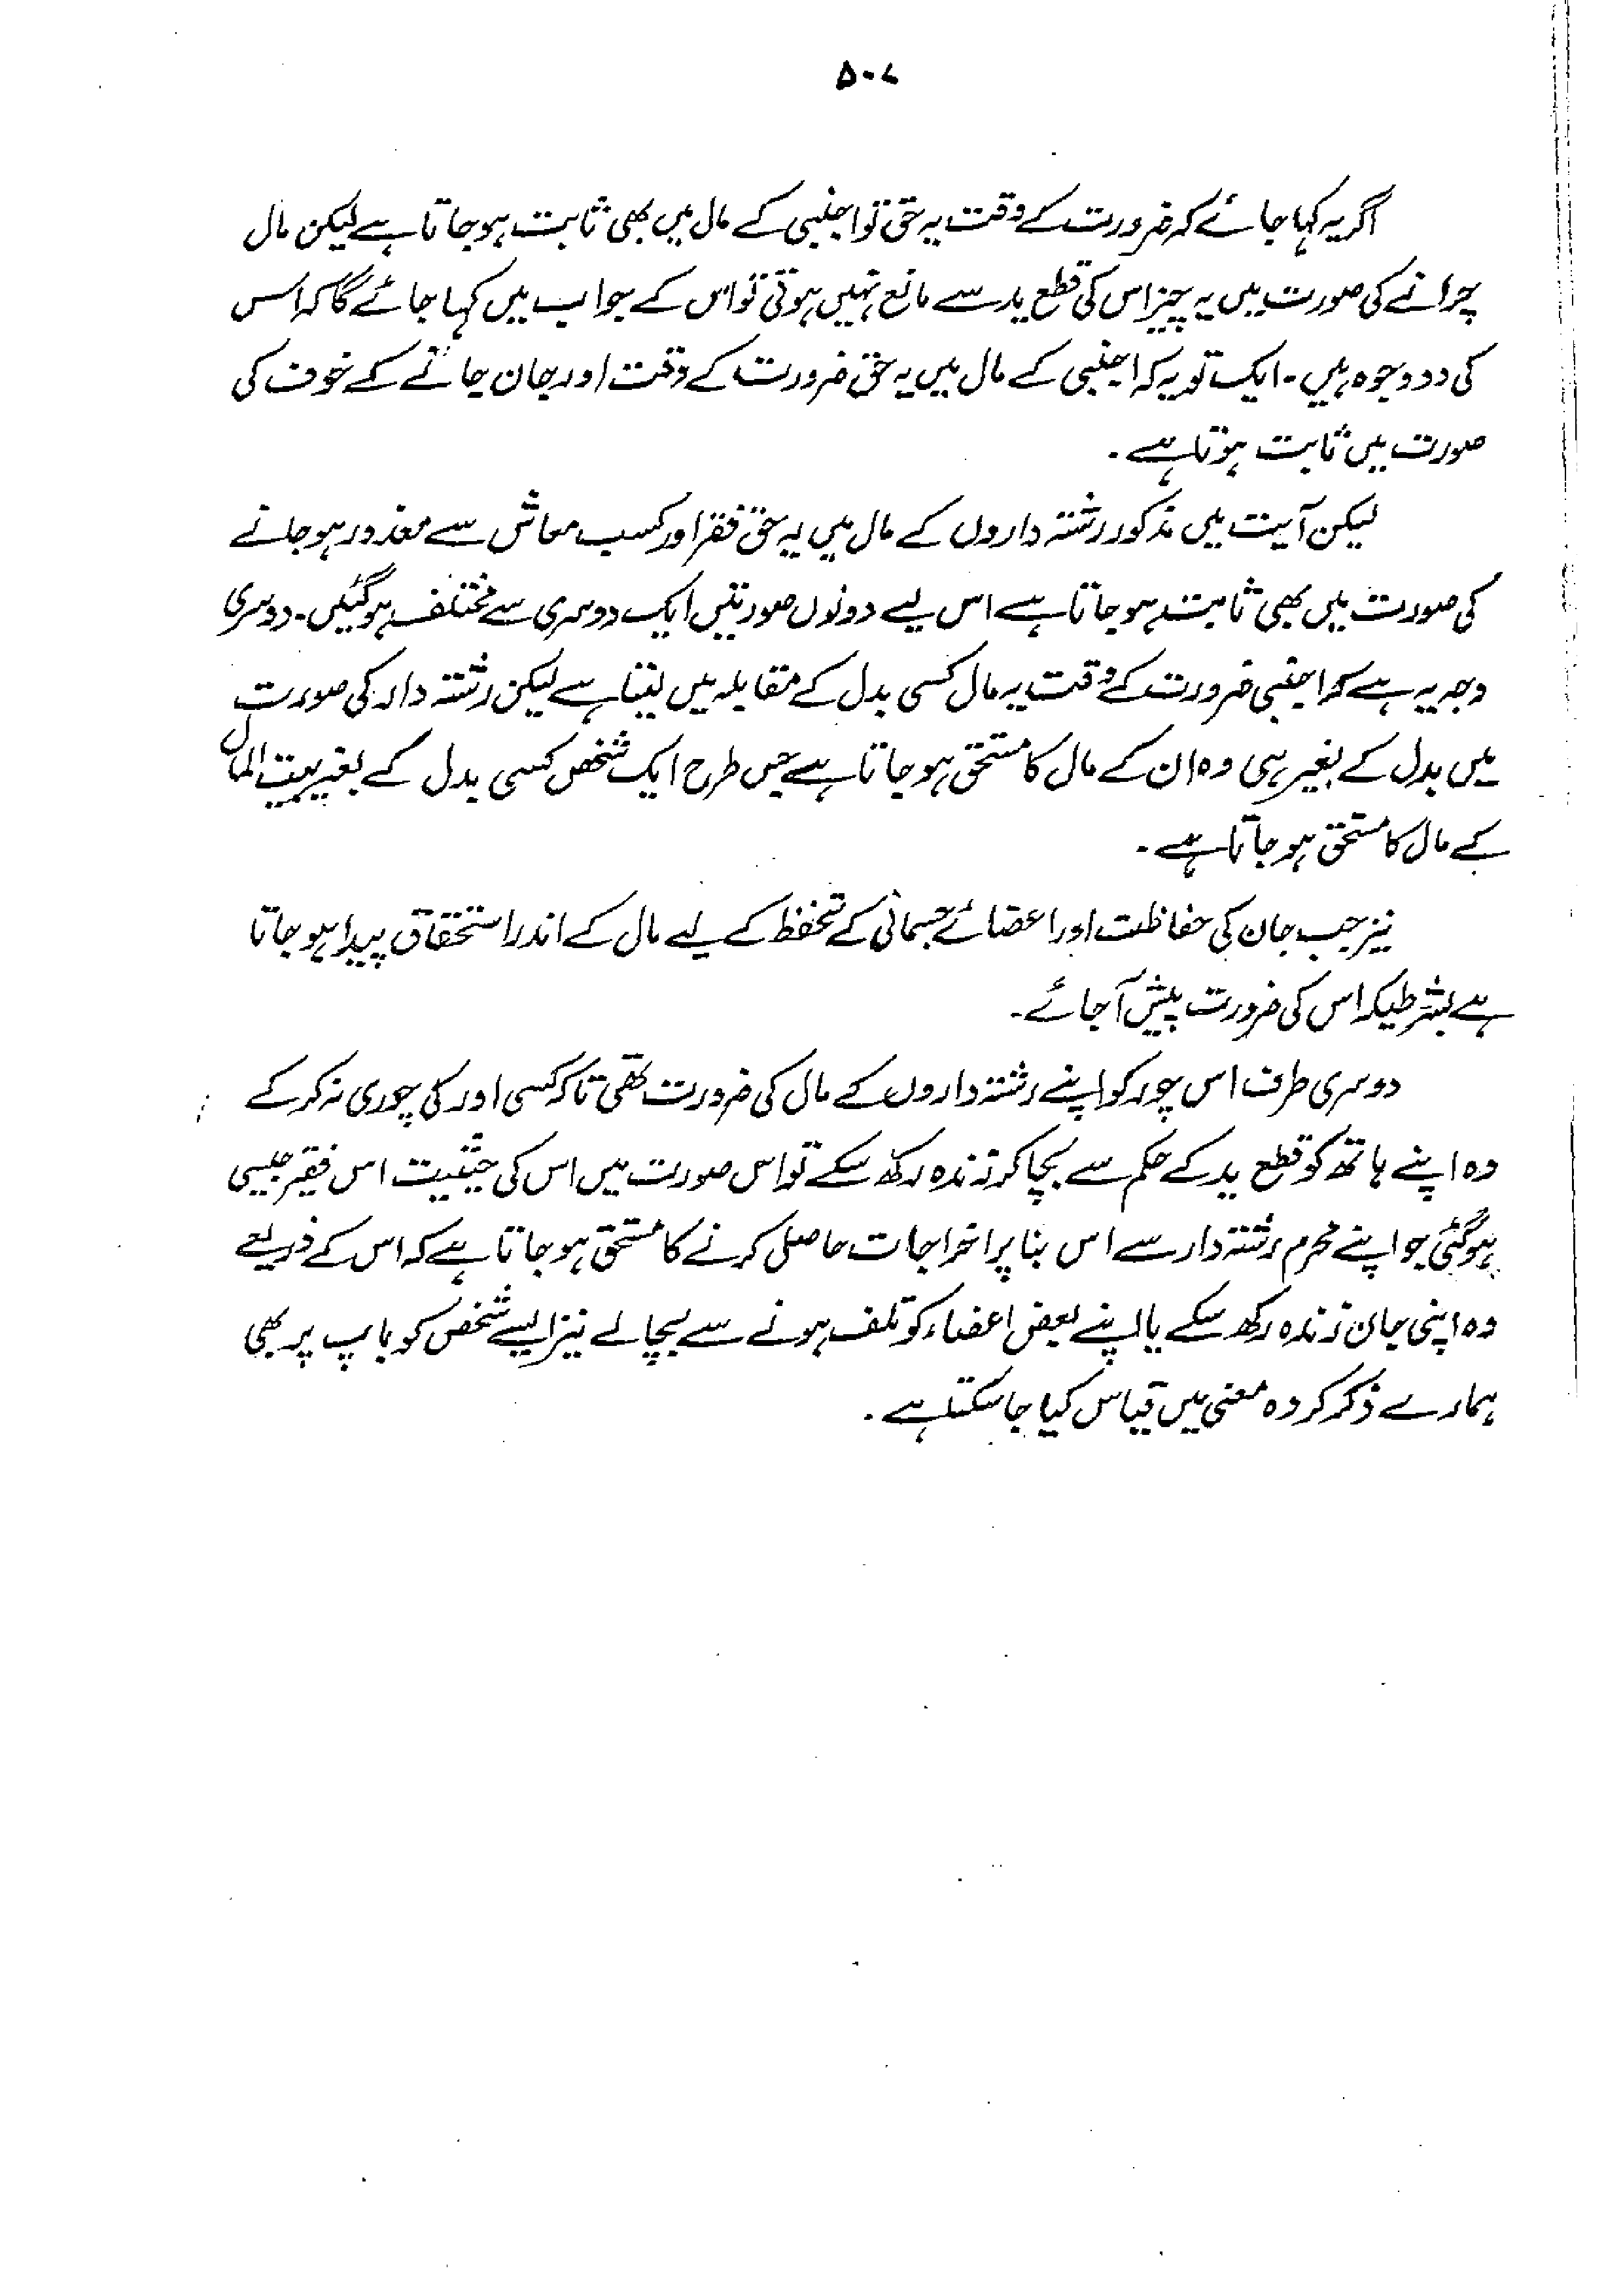 ۵۰۷
اگر یہ کہا جائے کہ ضرورت کے وقت یہ حق تو اجنبی کے مال میں بھی ثابت ہو جاتا ہے لیکن مال
چرانے کی صورت میں یہ چیز اس کی قطع ید سے مانع نہیں ہوتی تو اس کے جواب میں کہا جائے گا کہ اس
کی دو وجوہ ہیں۔ ایک تو یہ کہ اجنبی کے مال میں یہ حق ضرورت کے وقت اور جان جانے کے خوف کی
صورت میں ثابت ہوتا ہے۔
لیکن آیت میں مذکور رشتہ داروں کے مال میں یہ حق فقر اور کسب معاش سے معذور ہو جانے
کی صورت میں بھی ثابت ہو جاتا ہے اس لیے دونوں صورتیں ایک دوسری سے مختلف ہو گئیں۔ دوسری
وجہ یہ ہے کہ اجنبی ضرورت کے وقت یہ مال کسی بدل کے مقابلہ میں لیتا ہے لیکن رشتہ دار کی صورت
میں بدل کے بغیر ہی وہ ان کے مال کا مستحق ہو جاتا ہے جس طرح ایک شخص کسی بدل کے بغیر بیت المال
کے مال کا مستحق ہو جاتا ہے۔
نیز جب جان کی حفاظت اور اعضائے جسمانی کے تحفظ کے لیے مال کے اندر استحقاق پیدا ہو جاتا
ہے بشرطیکہ اس کی ضرورت پیش آ جائے۔
دوسری طرف اس چور کو اپنے رشتہ داروں کے مال کی ضرورت تھی تاکہ کسی اور کی چوری نہ کر کے
وہ اپنے ہاتھ کو قطع ید کے حکم سے بچا کر زندہ رکھ سکے تو اس صورت میں اس کی حیثیت اس فقیر جیسی
ہو گئی جو اپنے محرم رشتہ دار سے اس بنا پر اخراجات حاصل کرنے کا مستحق ہو جاتا ہے کہ اس کے ذریعے
وہ اپنی جان زندہ رکھ سکے یا اپنے بعض اعضاء کو تلف ہونے سے بچا لے نیز ایسے شخص کو باپ پر بھی
ہمارے ذکر کردہ معنی میں قیاس کیا جا سکتا ہے۔